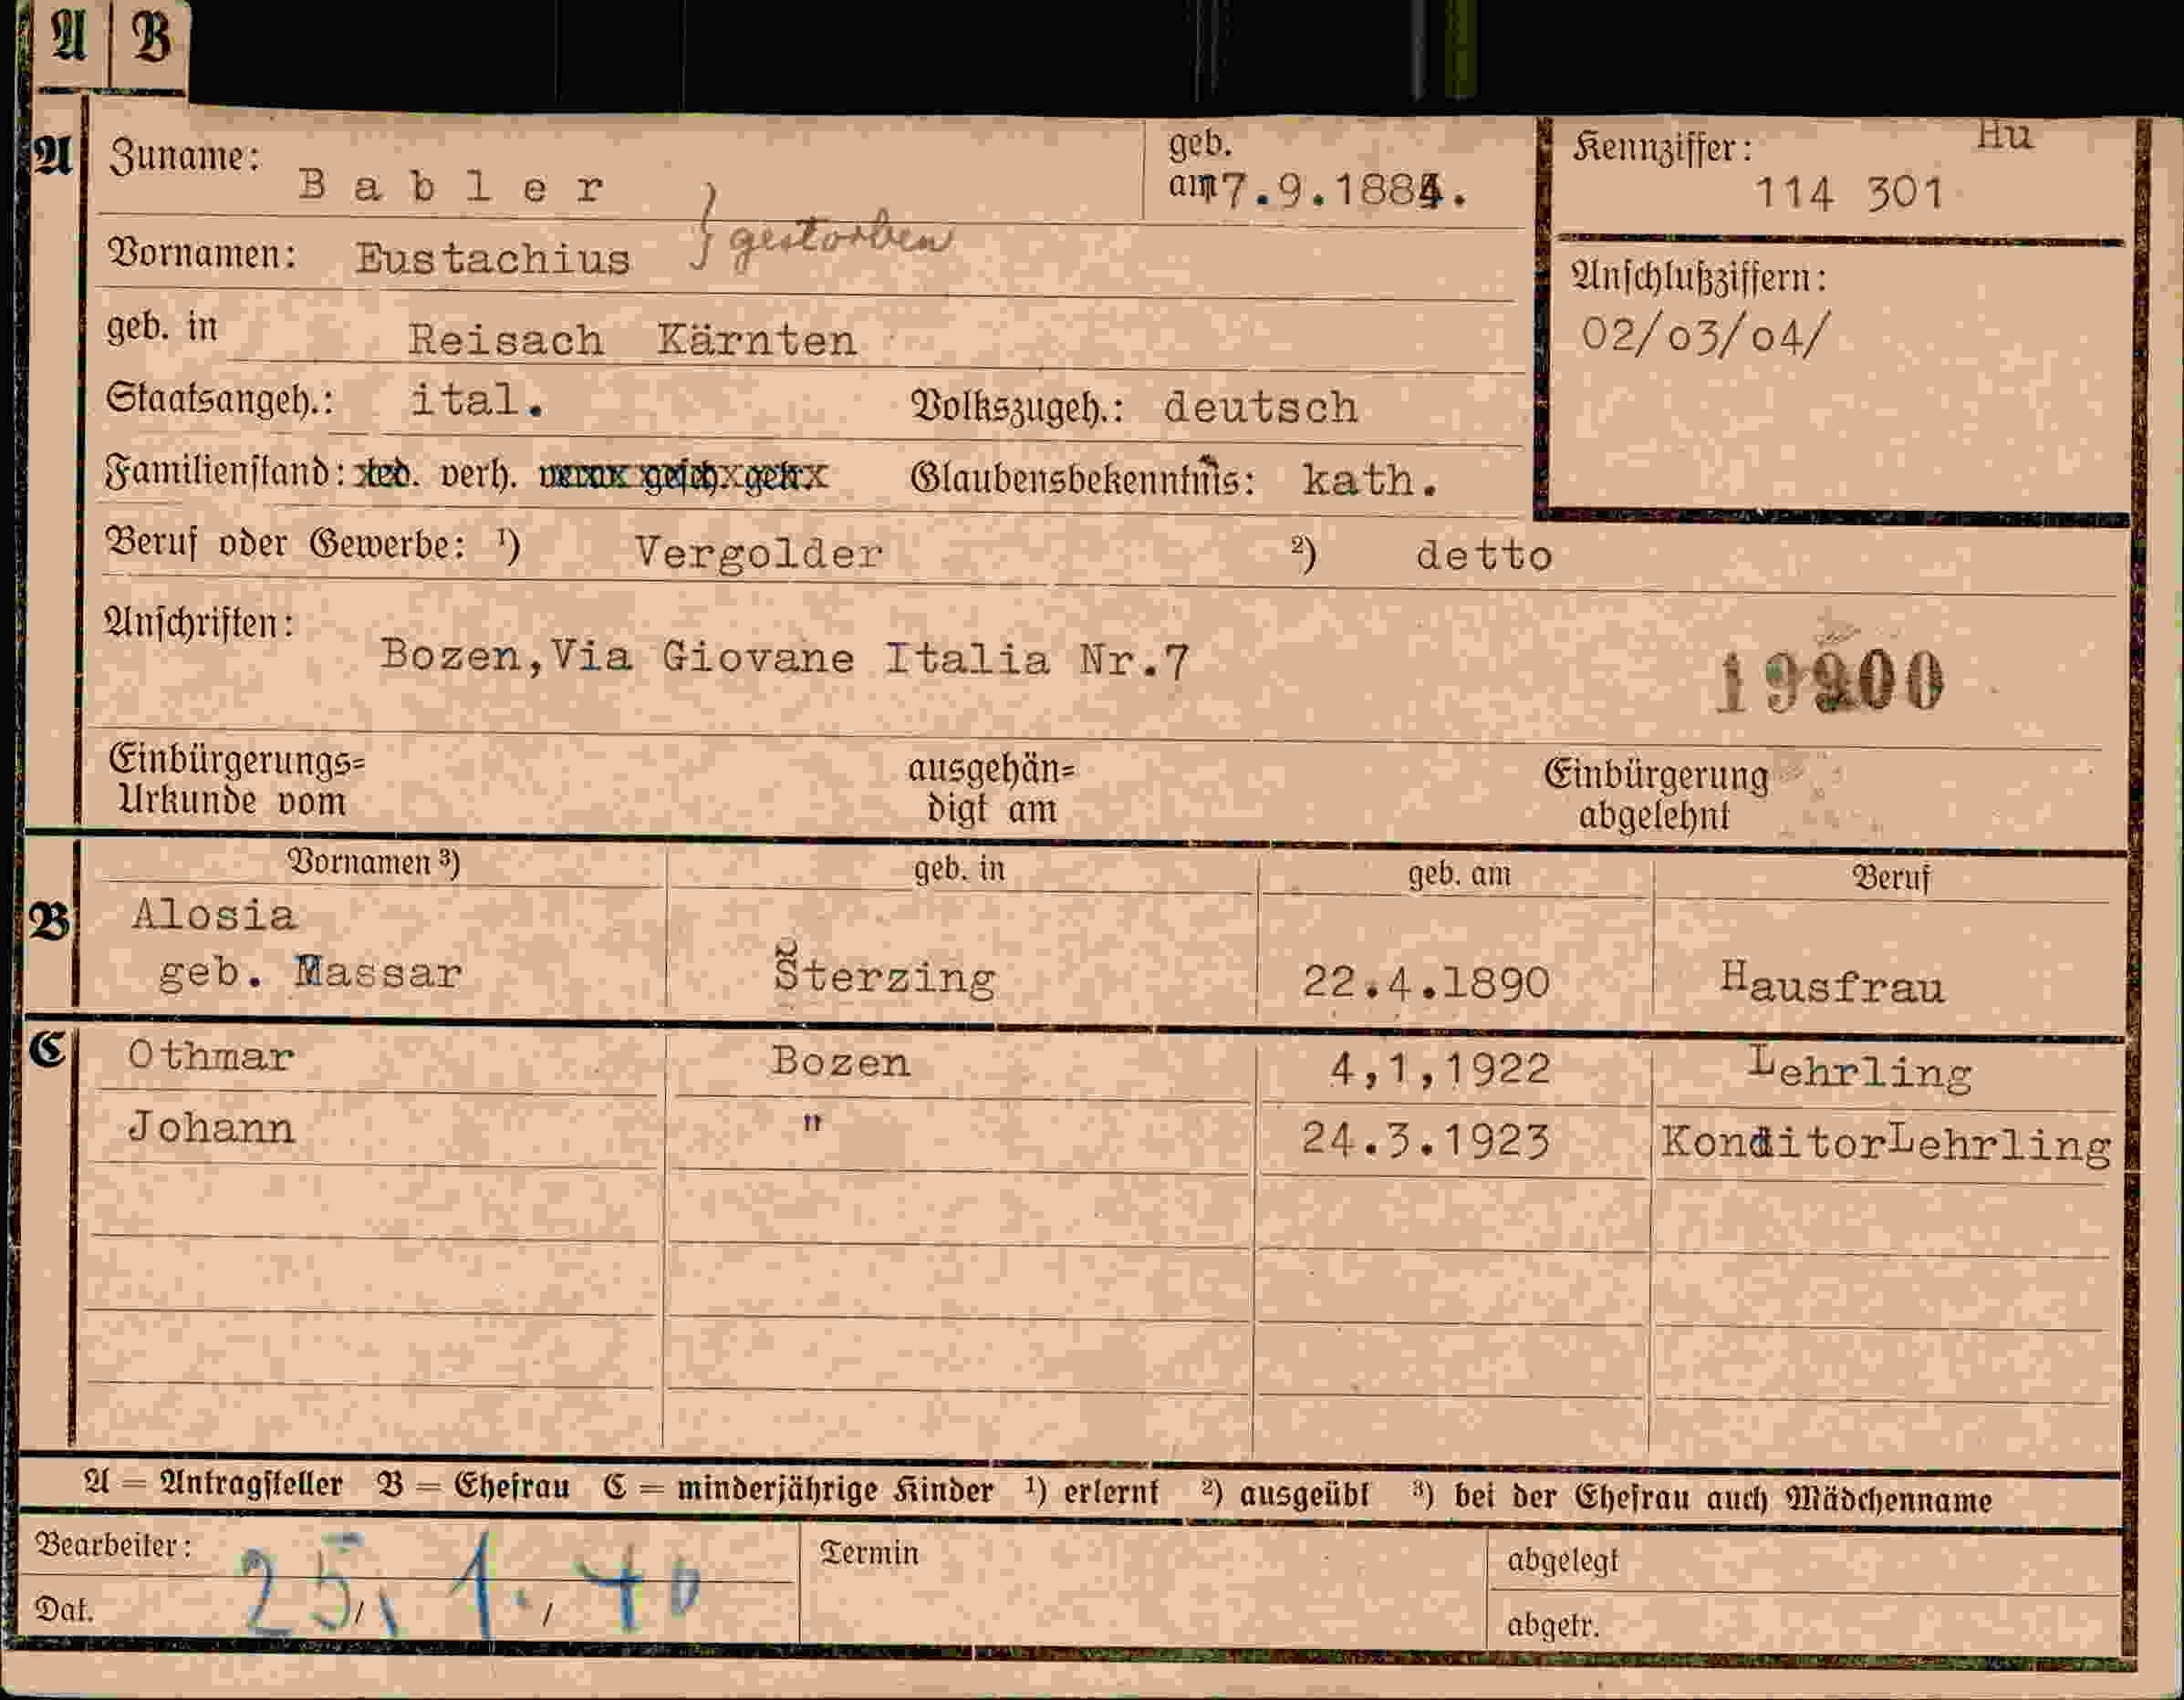 A B
A Zuname: Babler geb. am 7.9.1884. Kennziffer: Hu
114 301
Vornamen: Eustachius } gestorben
Anschlußziffern:
02/03/04/
geb. in Reisach Kärnten
Staatsangeh.: ital. Volkszugeh.: deutsch
Familienstand: led. verh. verw. gesch. getr. Glaubensbekenntnis: kath.
Beruf oder Gewerbe: ¹) Vergolder ²) detto
Anschriften:
Bozen, Via Giovane Italia Nr.7
Einbürgerungs= ausgehän= Einbürgerung
Urkunde vom digt am abgelehnt
Vornamen ³) geb. in geb. am Beruf
B Alosia
geb. Massar Sterzing 22.4.1890 Hausfrau
C Othmar Bozen 4,1,1922 Lehrling
Johann " 24.3.1923 KonditorLehrling
A = Antragsteller B = Ehefrau C = minderjährige Kinder ¹) erlernt ²) ausgeübt ³) bei der Ehefrau auch Mädchenname
Bearbeiter: Termin abgelegt
Dat. 25. 1. 40 abgetr.